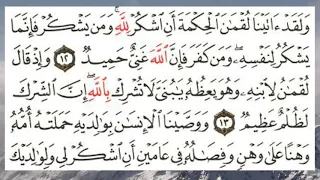 وَلَقَدْ ءَاتَيْنَا لُقْمَٰنَ ٱلْحِكْمَةَ أَنِ ٱشْكُرْ لِلَّهِ ۚ وَمَن يَشْكُرْ فَإِنَّمَا
يَشْكُرُ لِنَفْسِهِۦ ۖ وَمَن كَفَرَ فَإِنَّ ٱللَّهَ غَنِىٌّ حَمِيدٌ ١٢ وَإِذْ قَالَ
لُقْمَٰنُ لِٱبْنِهِۦ وَهُوَ يَعِظُهُۥ يَٰبُنَىَّ لَا تُشْرِكْ بِٱللَّهِ ۖ إِنَّ ٱلشِّرْكَ
لَظُلْمٌ عَظِيمٌ ١٣ وَوَصَّيْنَا ٱلْإِنسَٰنَ بِوَٰلِدَيْهِ حَمَلَتْهُ أُمُّهُۥ
وَهْنًا عَلَىٰ وَهْنٍ وَفِصَٰلُهُۥ فِى عَامَيْنِ أَنِ ٱشْكُرْ لِى وَلِوَٰلِدَيْكَ